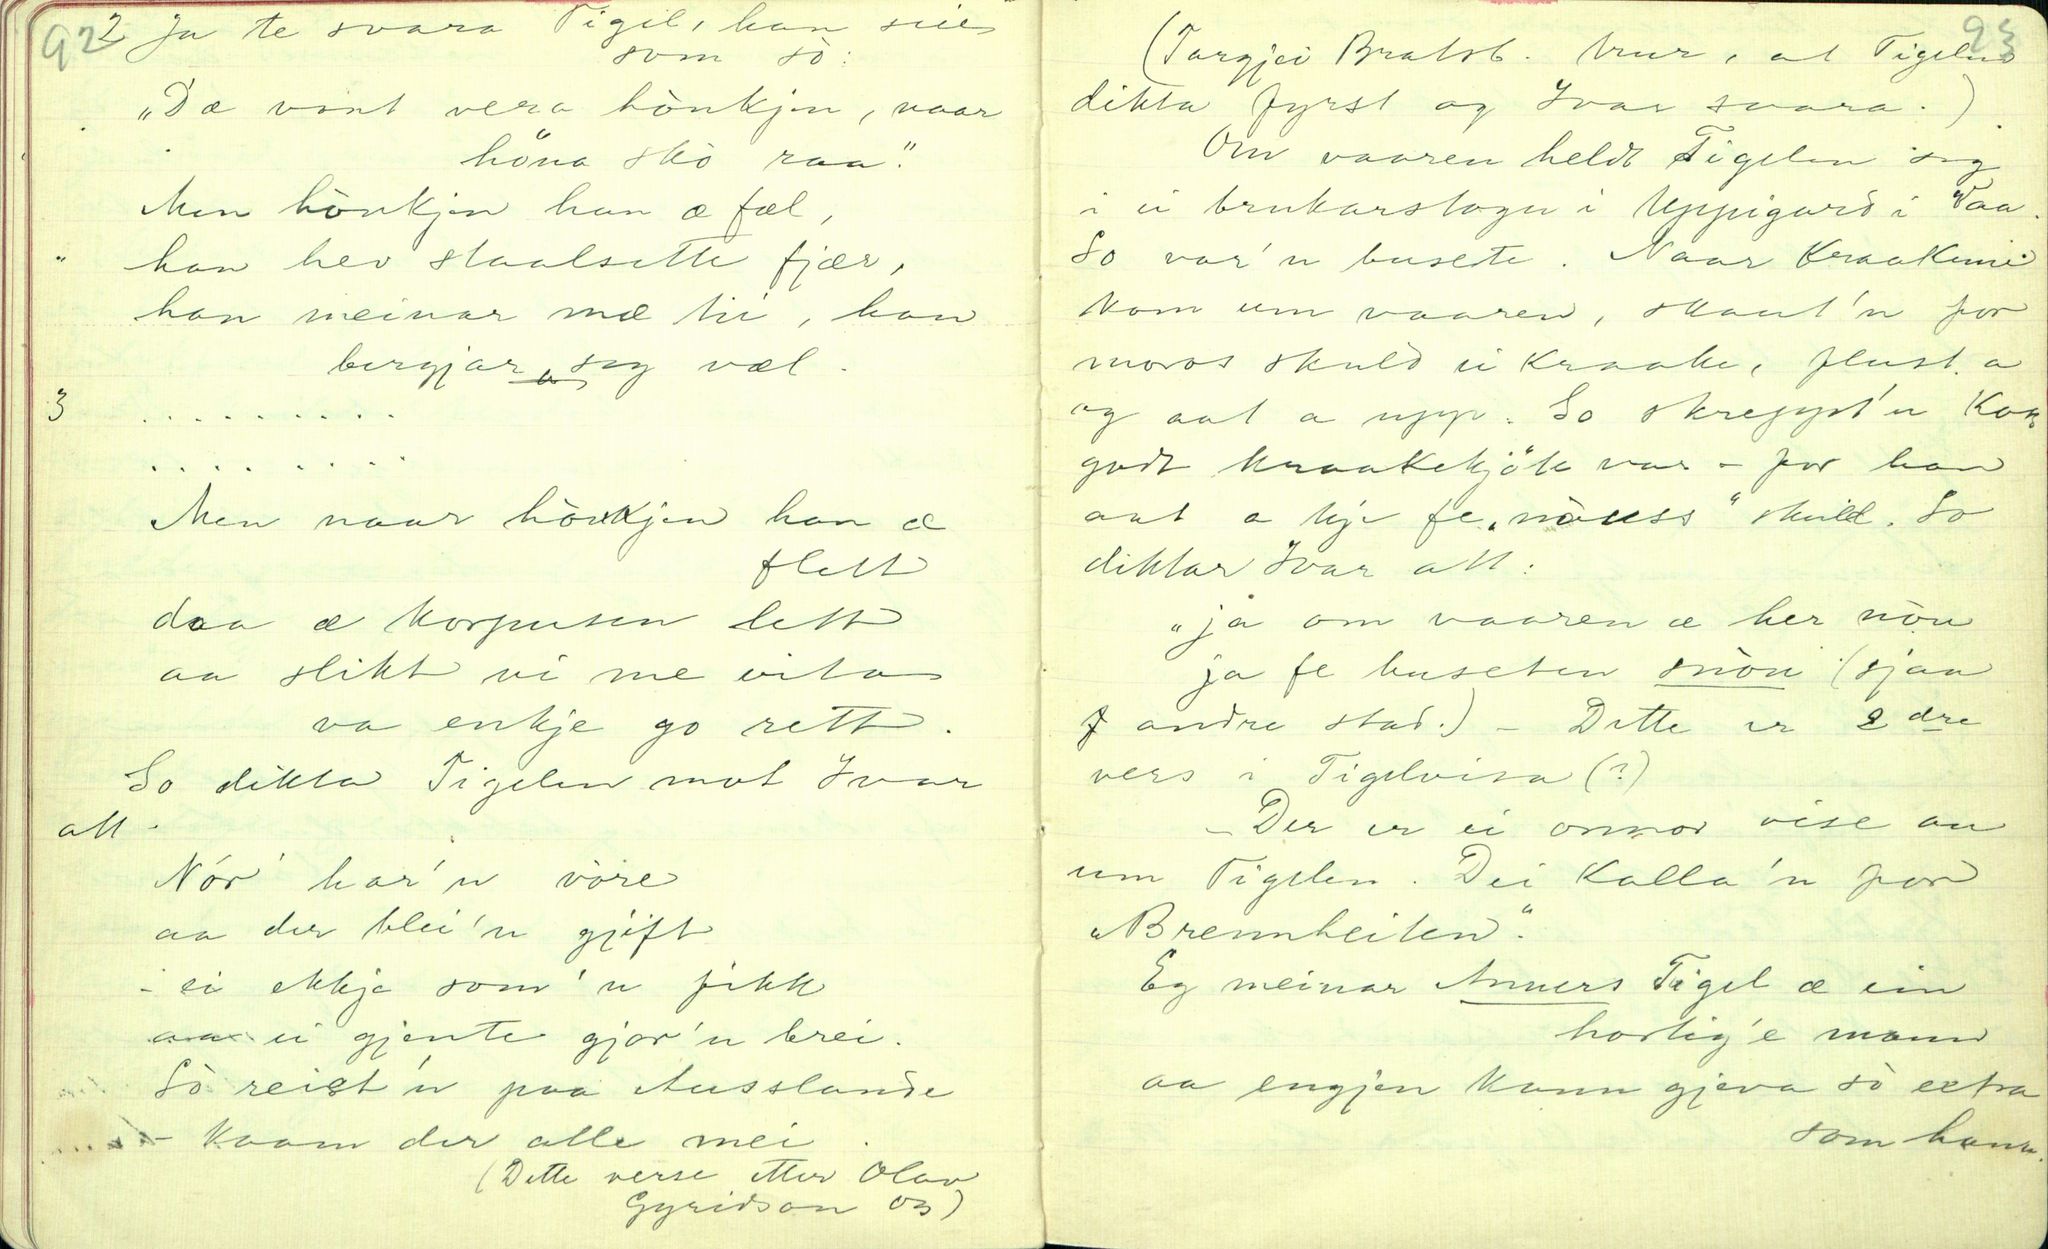 92
2 Ja te svara Tigel, han seie
som sò:
"Dæ vont vera hònkjen, naar
höna skò raa."
Men hònkjen han æ fæl,
han hev staalsette fjær,
han meinar mæ ti, han
bergjar seg væl.
3 . . . . . . . . .
. . . . . . . .
Men naar hònkjen han æ
flett
daa æ korpusen lett
aa slikt vi me vita
va enkje go rett.
So dikta Tigelen mot Ivar
att.
Nór' har'n vòre
aa der blei'n gjift
- ei ekkje som'n fikk
aa ei gjente gjor'n brei.
Sò reist'n paa Ausslande
- kaam der alle mei.
(Dette verse etter Olav
Gyridson Os)
93
(Targjei Bratsb. trur, at Tigelen
dikta fyrst og Ivar svara.)
Om vaaren heldt Tigelen seg
i ei brukarstogu i Uppigard i Daa.
So var'n busete. Naar kraakune
kom um vaaren, skaut'n for
moros skuld ei kraake, flust. a
og aat a upp. So skrepyt'n kor
godt kraakekjöte var - for han
aat a kje fe "nòuss" skuld. So
diktar Ivar att:
"ja om vaaren æ her nòu
ja fe buseten snòu (sjaa
andre stad.) - Dette er 2dre
vers i Tigelvisa (?)
- Der er ei onnor vise au
um Tigelen. Dei kalla'n for
"Brennheiten".
Eg meinar Anners Tigel æ ein
hortig'e mann
aa engjen kann gjera sò extra
som hann.